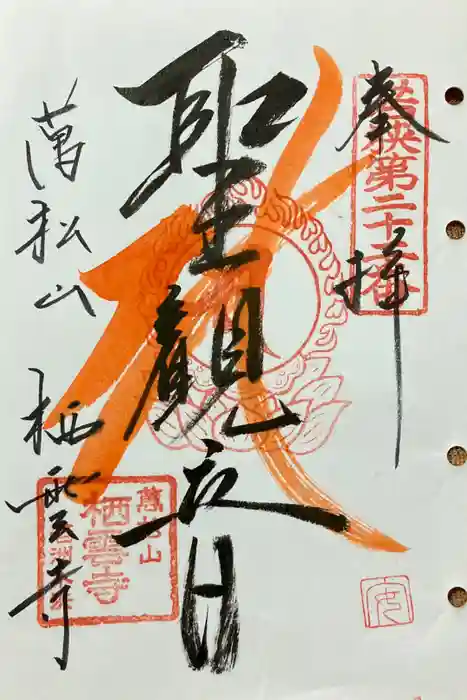 奉拝
若狭第二十六番
聖観音
萬松山
栖雲寺
萬松山
栖雲寺